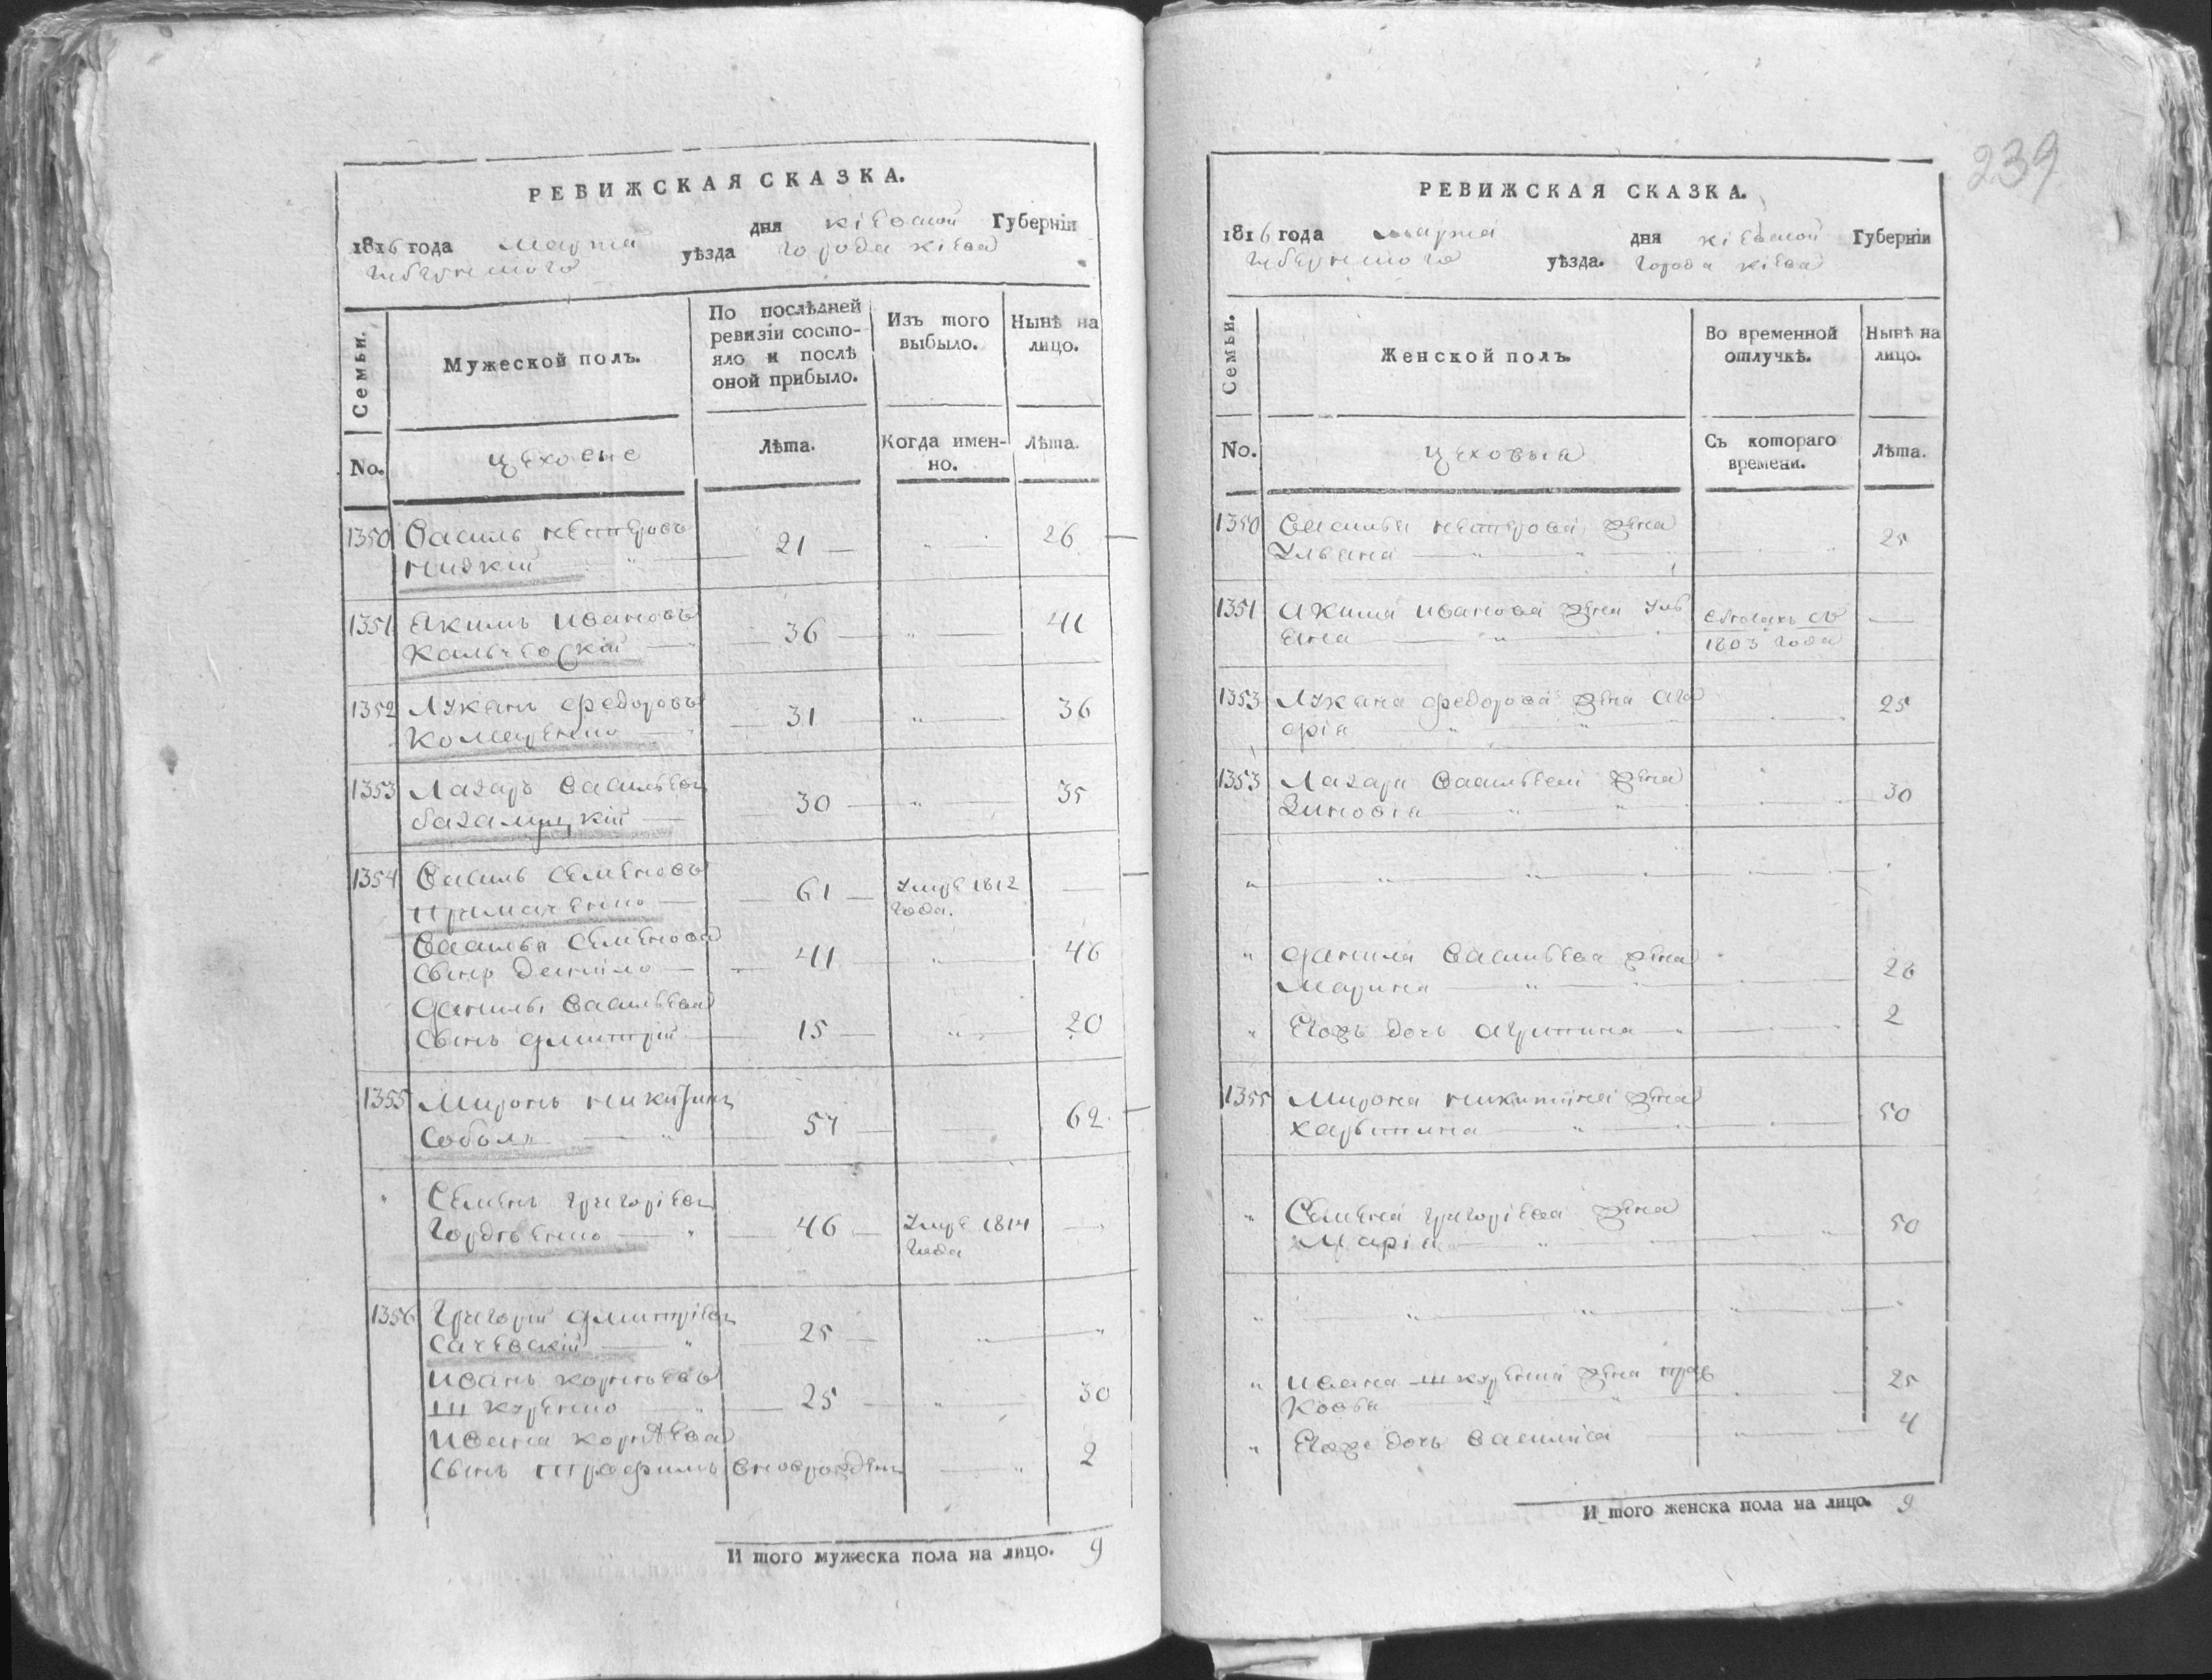 РЕВИЖСКАЯ СКАЗКА.
1816 года Марта дня Кіевской Губерніи
уѣзда Города Кіева
Семьи.
Мужеской полъ.
По послѣдней
ревизіи состо-
яло и послѣ
оной прибыло.
Изъ того
выбыло.
Нынѣ на
лицо.
No.
Цеховые
Лѣта.
Когда имен-
но.
Лѣта.
1350 Василь Нестеровъ
Низкий 21 26
1351 Якимъ Ивановъ
36 41
1352 Лукянъ Федоровъ
31 36
1353 Лазаръ Васильевъ
30 35
1354 Василь Семеновъ
Примаченко 61 Умре 1812
года.
Василья Семенова
сынъ Данило 41 46
Данилы Васильева
Сынъ Дмитрий 15 20
1355 Миронъ Никитинъ
Соболь 57 62
Семенъ Григоріевъ
Гордѣенко 46 Умре 1814
года
1356 Григорий Дмитріевъ
Сачевский 25
Иванъ Корнѣевъ
Шкуренко 25 30
Ивана Корнѣева
Сынъ Трофимъ вноврожденъ 2
И того мужеска пола на лицо. 9
239
РЕВИЖСКАЯ СКАЗКА.
1816 года Марта дня Кіевской Губерніи
уѣзда. Города Кіева
Семьи.
Женской полъ.
Во временной
отлучкѣ.
Нынѣ на
лицо.
No.
Цеховыя
Съ котораго
времени.
Лѣта.
1350 Василья Нестерова жена
Ульяна 25
1351 Якима Иванова жена Уль
яна въ бѣгахъ съ
1803 года
1353 Лукяна Федорова жена Ага
фія 25
1353 Лазаря Васильева жена
Зиновія 30
Данила Васильева жена
Марина 26
Егожъ дочь Агрипина 2
1355 Мирона Никитина жена
Харытина 50
Семена Григоріева жена
Марія 50
Ивана Шкуренка жена Прас
ковья 25
Егоже дочь Василиса 4
И того женска пола на лицо. 9